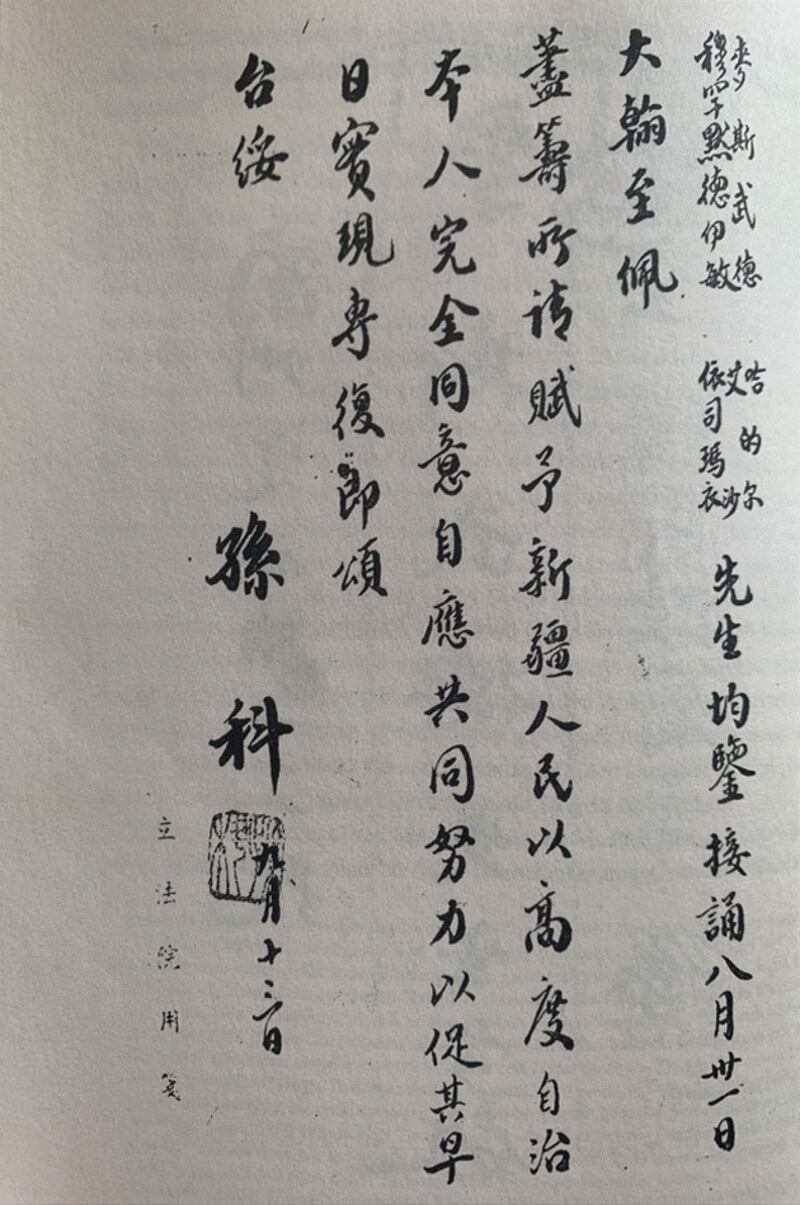 麥斯武德
穆罕默德伊敏
哈的尔
艾沙
依司瑪衣
先生均鑒接誦八月卅一日
大翰至佩
藎籌所請賦予新疆人民以高度自治
本人完全同意自應共同努力以促其早
日實現專復即頌
台綏
孫科 九月十三日
立法院用箋